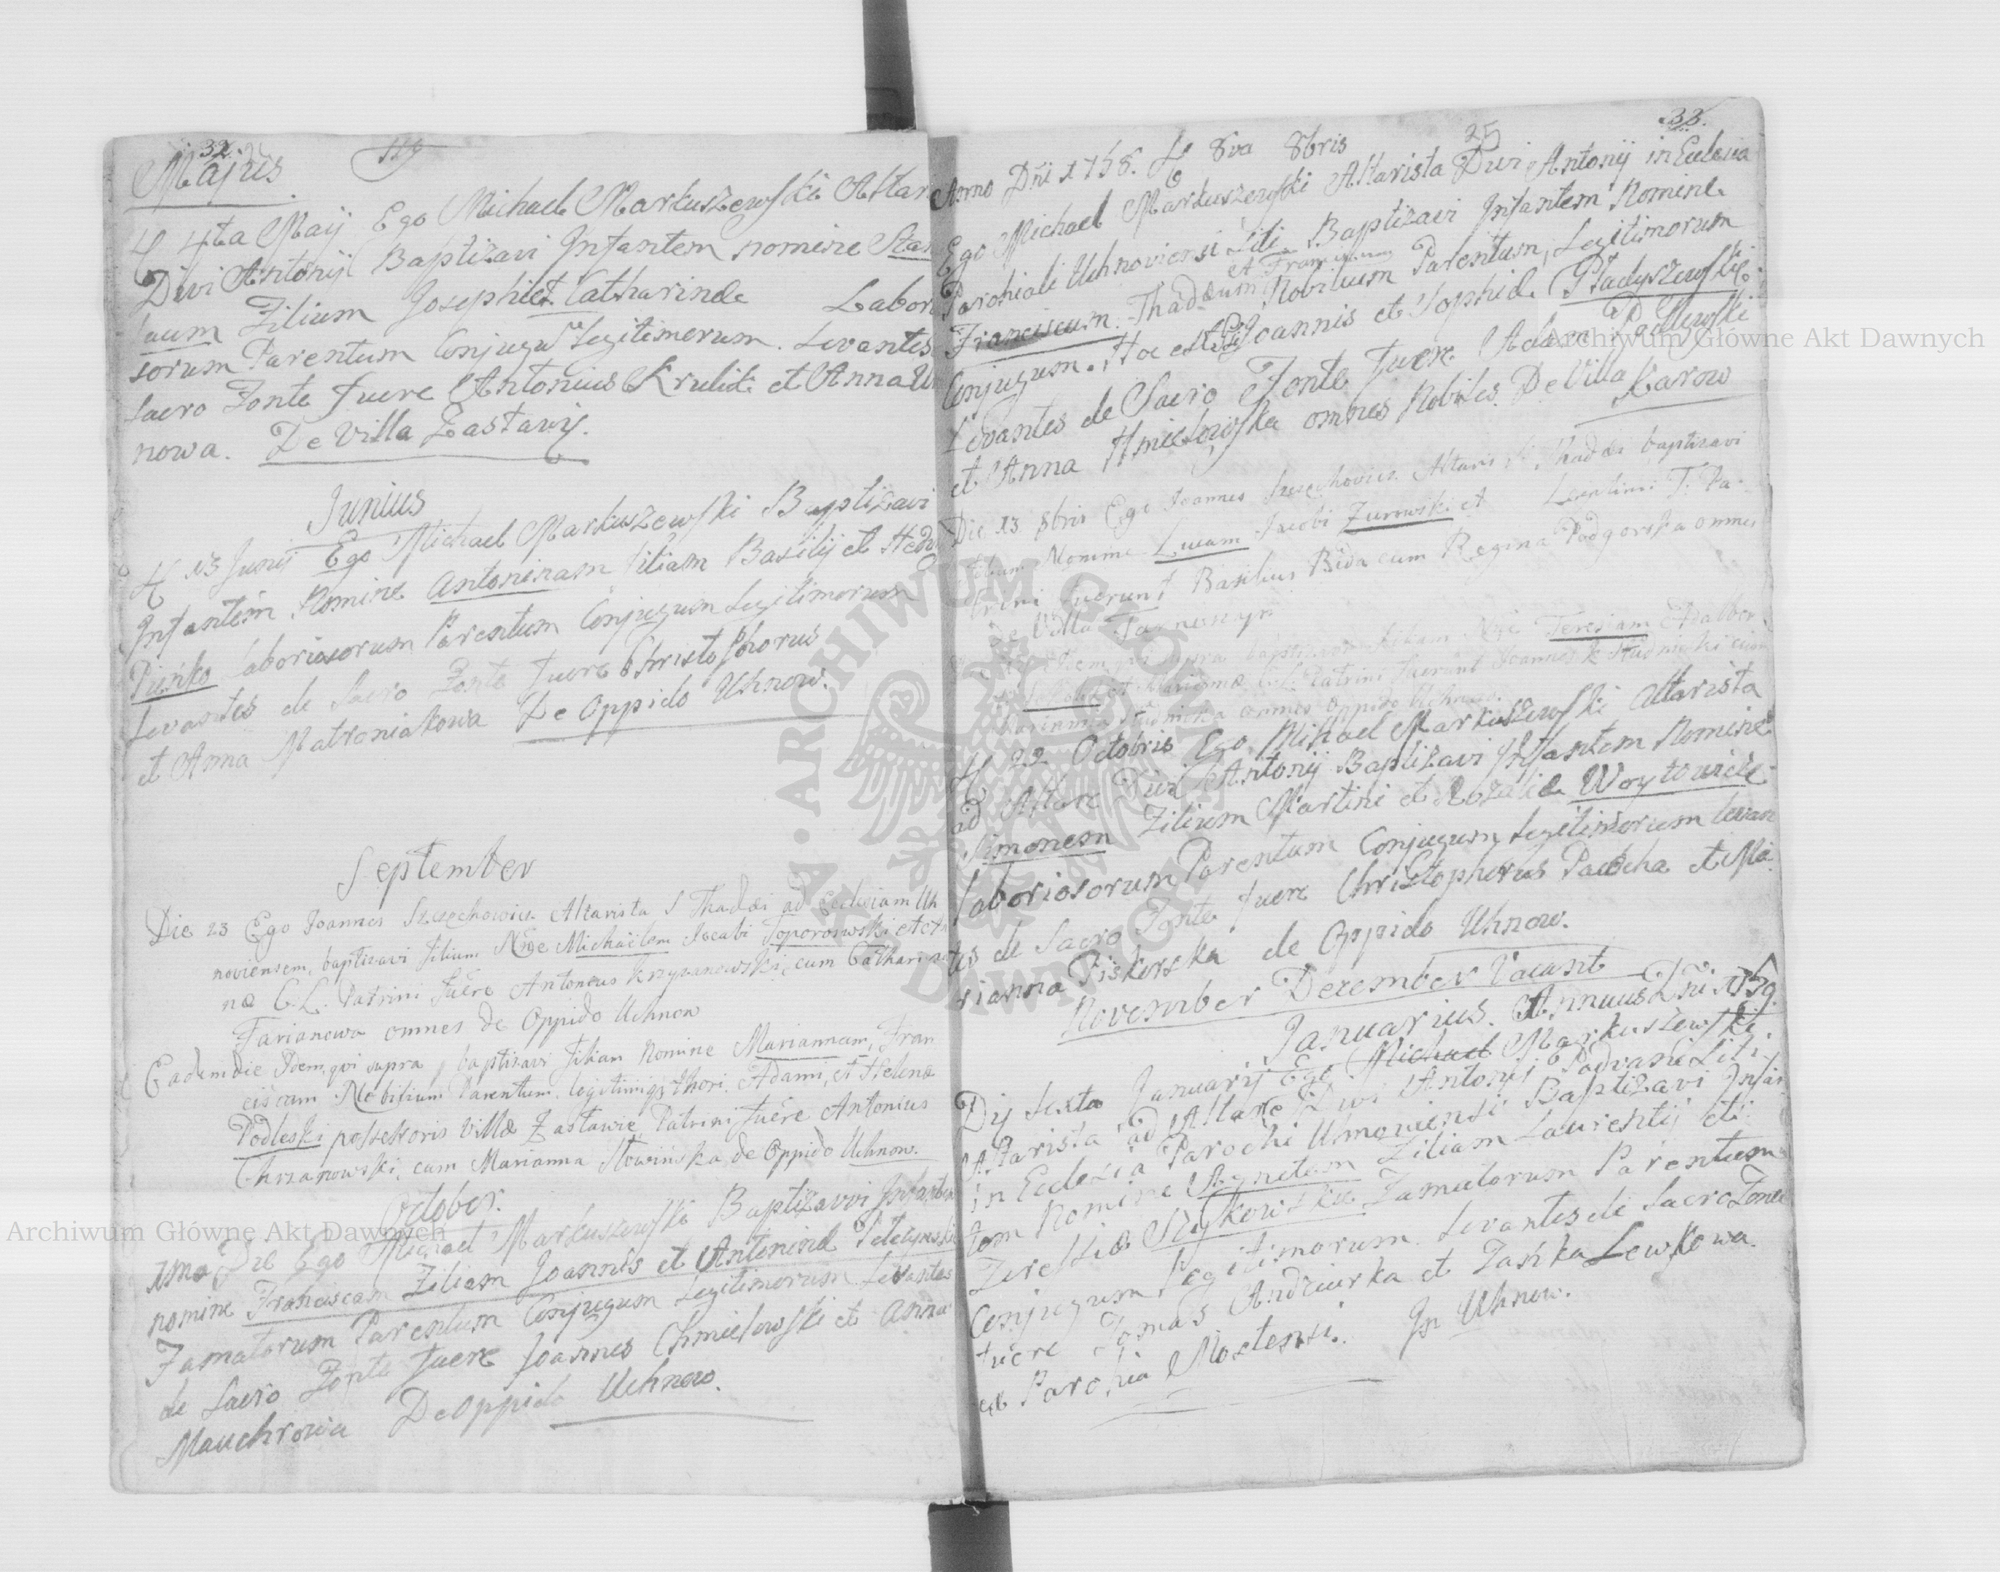 32.
Majus
119
4ta Maij Ego Michael Markuszewski Altar
Divi Antonij Baptizavi Infantem nomine Stan
laum Filium Josephi et Catharinae Labor
sorum Parentum Conjugum Legitimorum. Levantes
sacro Fonte fuere Antonius Krulik et Anna
nowa. De Villa Zastawij.
Junius
13 Junij Ego Michael Markuszewski Baptizavi
Infantem Nomine Antoninam Filiam Basilij et Hedv
Pieńko laboriosorum Parentum Conjugum Legitimorum
Levantes de Sacro Fonte fuere Christophorus
et Anna Matroniakowa De Oppido Uhnow.
September
Die 23 Ego Joannes Szczechowicz Altarista S Thadaei ad Eccl Uh
noviensem, baptizavi Filium Nne Michaëlem Jacobi Toporowski et
nae C. L. Patrini fuere Antonius Krzyzanowski, cum Catharina
Farianowa omnes de Oppido Uchnow
Eadem die Idem, qui supra, baptizavi Filiam Nomine Mariannam, Fran
ciscam Nobilium Parentum, legitimiq thori, Adami, et Helenae
Podleski possessoris Villae Zastawie Patrini fuere Antonius
Chrzanowski, cum Marianna Słowińska de Oppido Uchnow.
October.
1ma Die Ego Michael Markuszewski Baptizavvi Infantem
nomine Franciscam Filiam Joannis et Antoninae
Famatorum Parentum Conjugum Legitimorum Levantes
de Sacro Fonte fuere Joannes Chmielowski et Anna
Mauchrowa De Oppido Uchnow.
33.
25
Anno Dni 1758. 8va 8bris
Ego Michael Markuszewski Altarista Divi Antonij in Eclesia
Parochiali Uchnoviensi Baptizavi Infantem Nomine
Franciscum Thadaeum Nobilium Parentum, Legitimorum
Conjugum. Hoc est Joannis et Sophiae
Levantes de Sacro Fonte fuere Adam Podlewski
et Anna Hmielowska omnes Nobiles De Villa Karow
Die 13 8bris Ego Joannes Szczechowicz Altaris S Thadaei baptizavi
Filium Nomine Lucam Jacobi Zurowski et L. T. Pa-
trini fuerunt Basilius Bida cum Regina Podgorska omnes
de Villa
Idem, qui supra baptizavi Filiam Nne Teresiam Adalber
et Mariannae C. L. Patrini fuerunt Joannes Studnicki cum
Marianna Studnicka omnes Oppido Uchnow.
22 Octobris Ego Mihael Markuszewski Altarista
ad Altare Divi Antonij Baptizavi Infantem Nomine
Simonem Filium Martini et Rozaliae Woytowicz
Laboriosorum Parentum Conjugum Legitimorum Levan
tes de Sacro Fonte fuere Christophorus Paucha et Ma-
rianna Piskorska de Oppido Uhnow.
November December Vacant
Januarius. Annuus Dni 1759.
Dij sexta Januarij Ego Michael Markuszewski
Altarista ad Altare Divi Antonij Padvani
in Ecclesia Parochi Baptizavi Infan
tem Nomine Agnetem Filiam Laurentij et
Teressiae Famatorum Parentum
Conjugum Legitimorum. Levantes de Sacro Fonte
fuere Tomas Andziurka et Zaśka Lewkowa.
ex Parochia Mostensi. In Uhnow.
ARCHIWUM GŁÓWNE AKT DAWNYCH
Archiwum Główne Akt Dawnych
Archiwum Główne Akt Dawnych